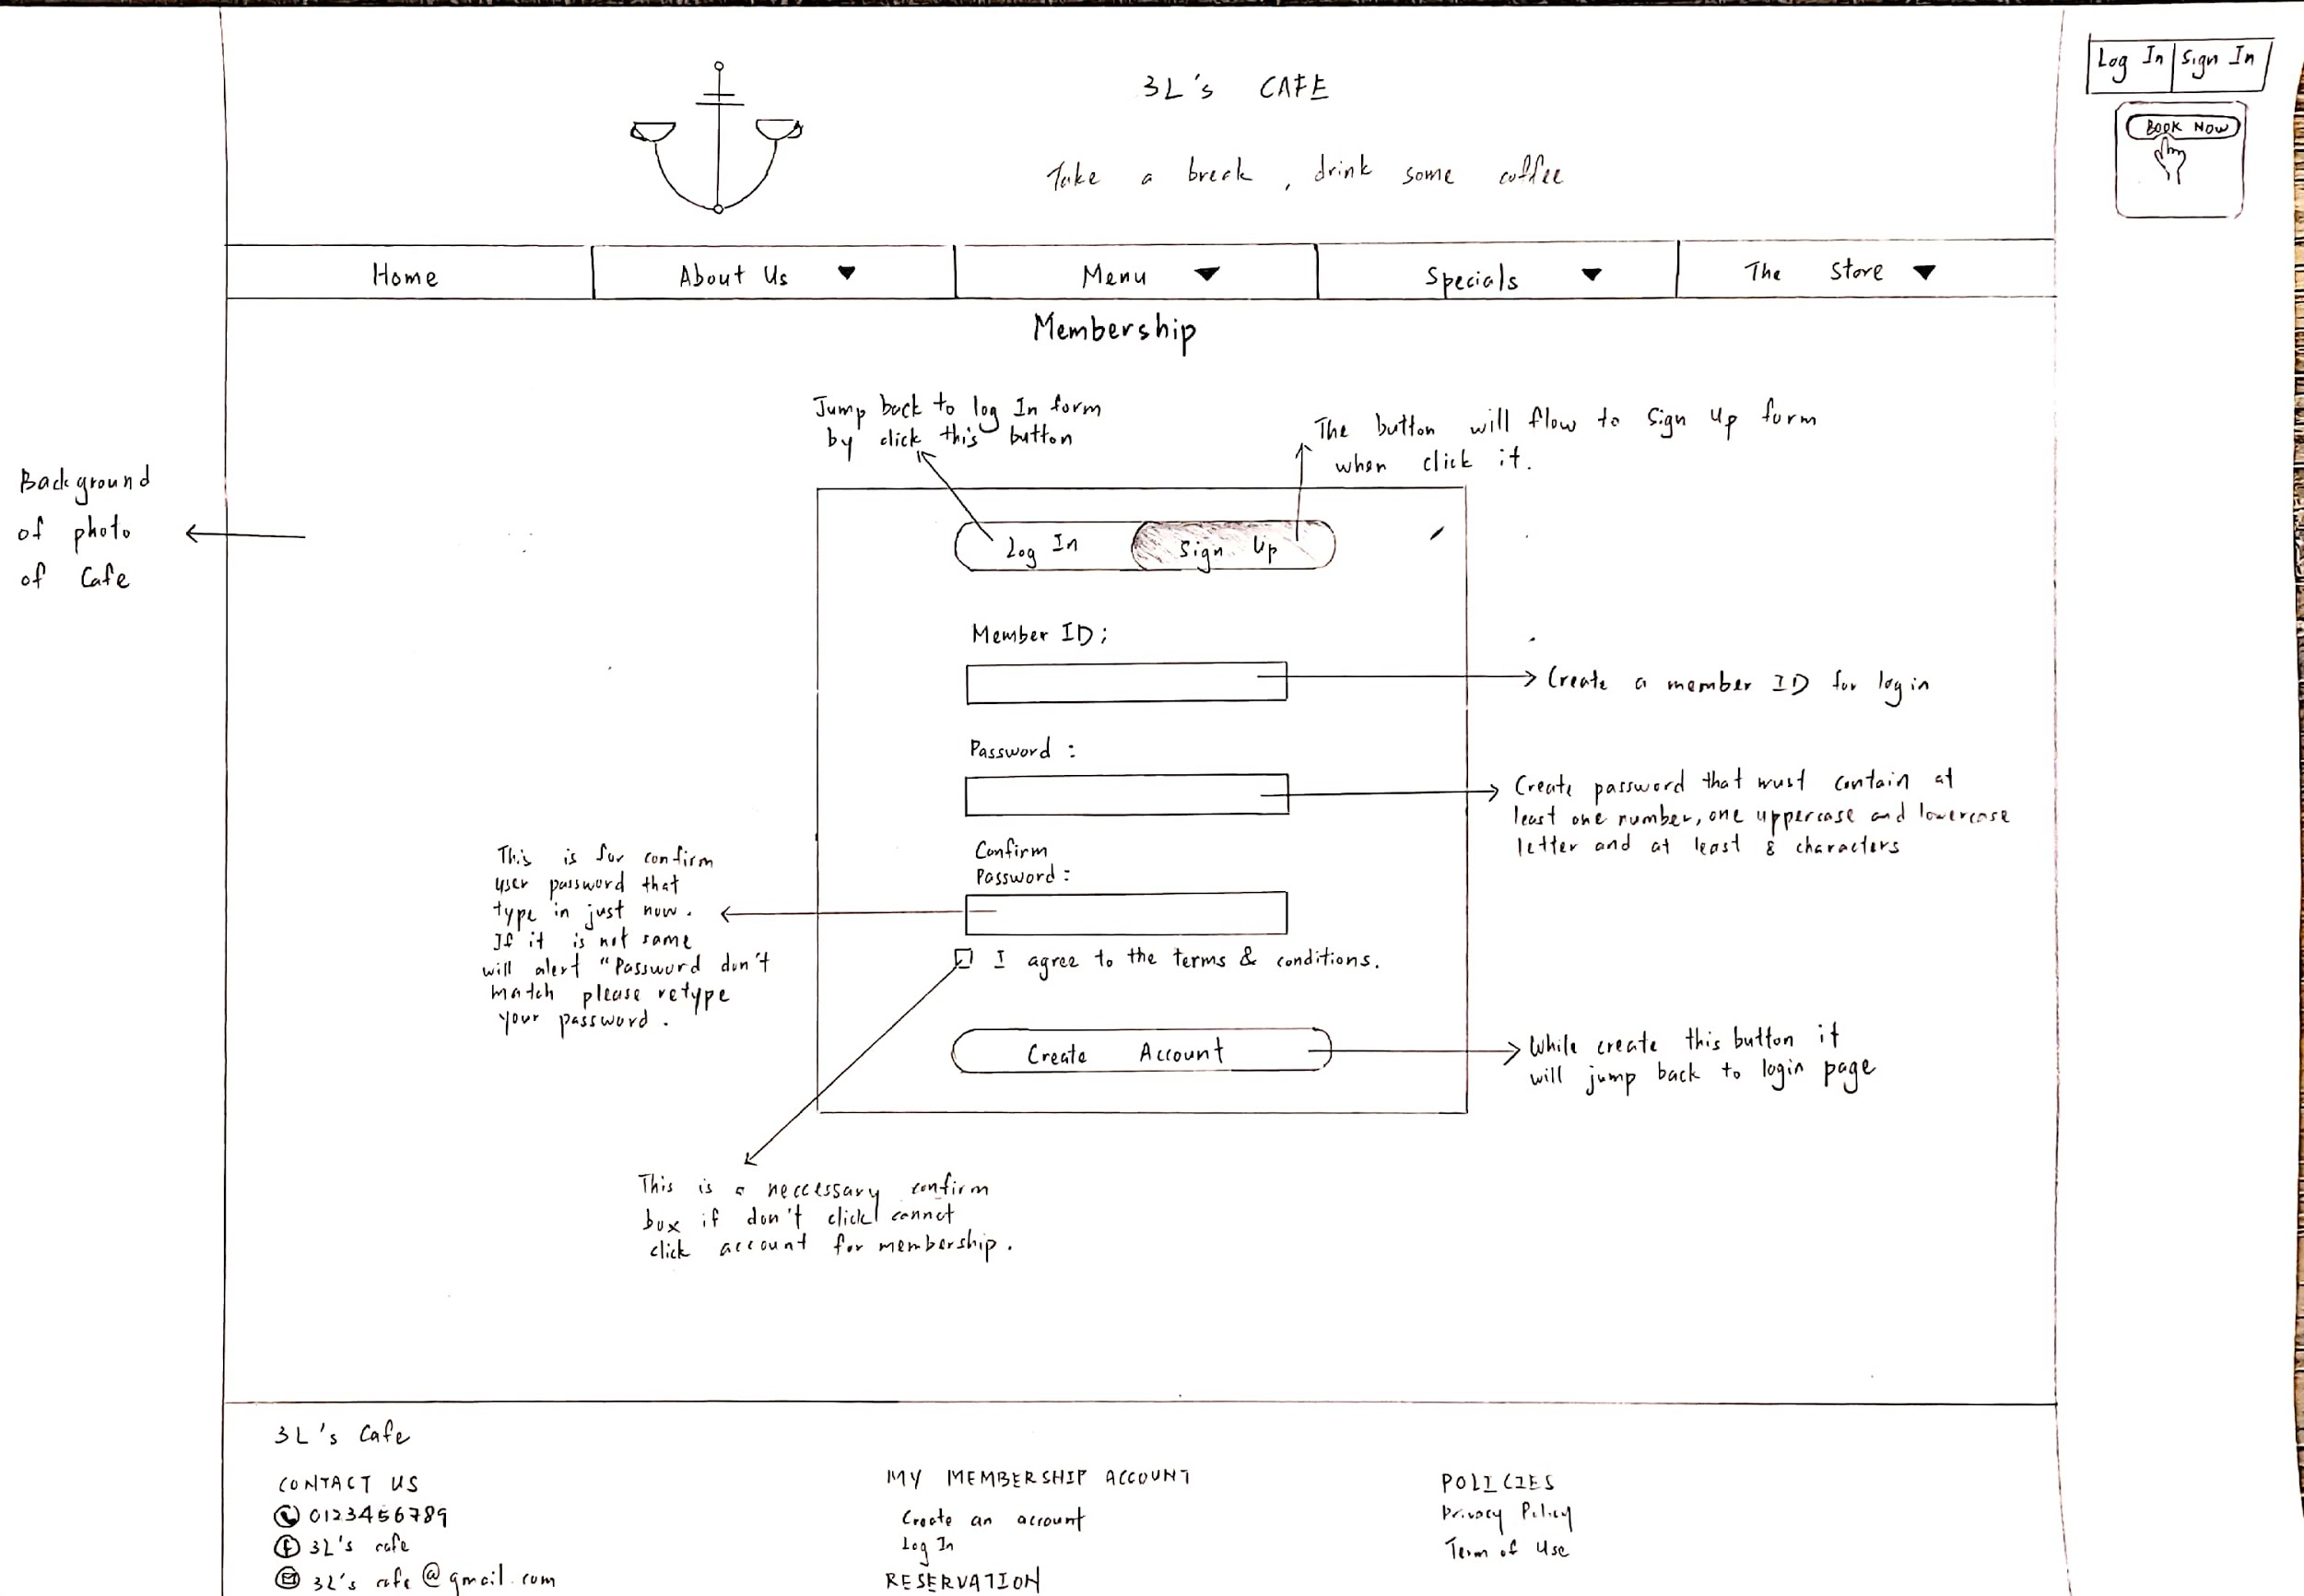 3L's CAFE
Take a break, drink some coffee
Log In Sign In
BOOK NOW
Home About Us Menu Specials The Store
Membership
Jump back to log In form
by click this button
The button will flow to Sign Up form
when click it.
Background
of photo
of Cafe
Log In Sign Up
Member ID;
Create a member ID for login
Password :
Create password that must contain at
least one number, one uppercase and lowercase
letter and at least 8 characters
Confirm
Password :
This is for confirm
user password that
type in just now.
If it is not same
will alert "Password don't
match please retype
your password.
I agree to the terms & conditions.
Create Account
While create this button it
will jump back to login page
This is a neccessary confirm
box if don't click cannot
click account for membership.
3L's Cafe
CONTACT US
0123456789
3L's cafe
3L's cafe@gmail.com
MY MEMBERSHIP ACCOUNT
Create an account
Log In
RESERVATION
POLICIES
Privacy Policy
Term of Use